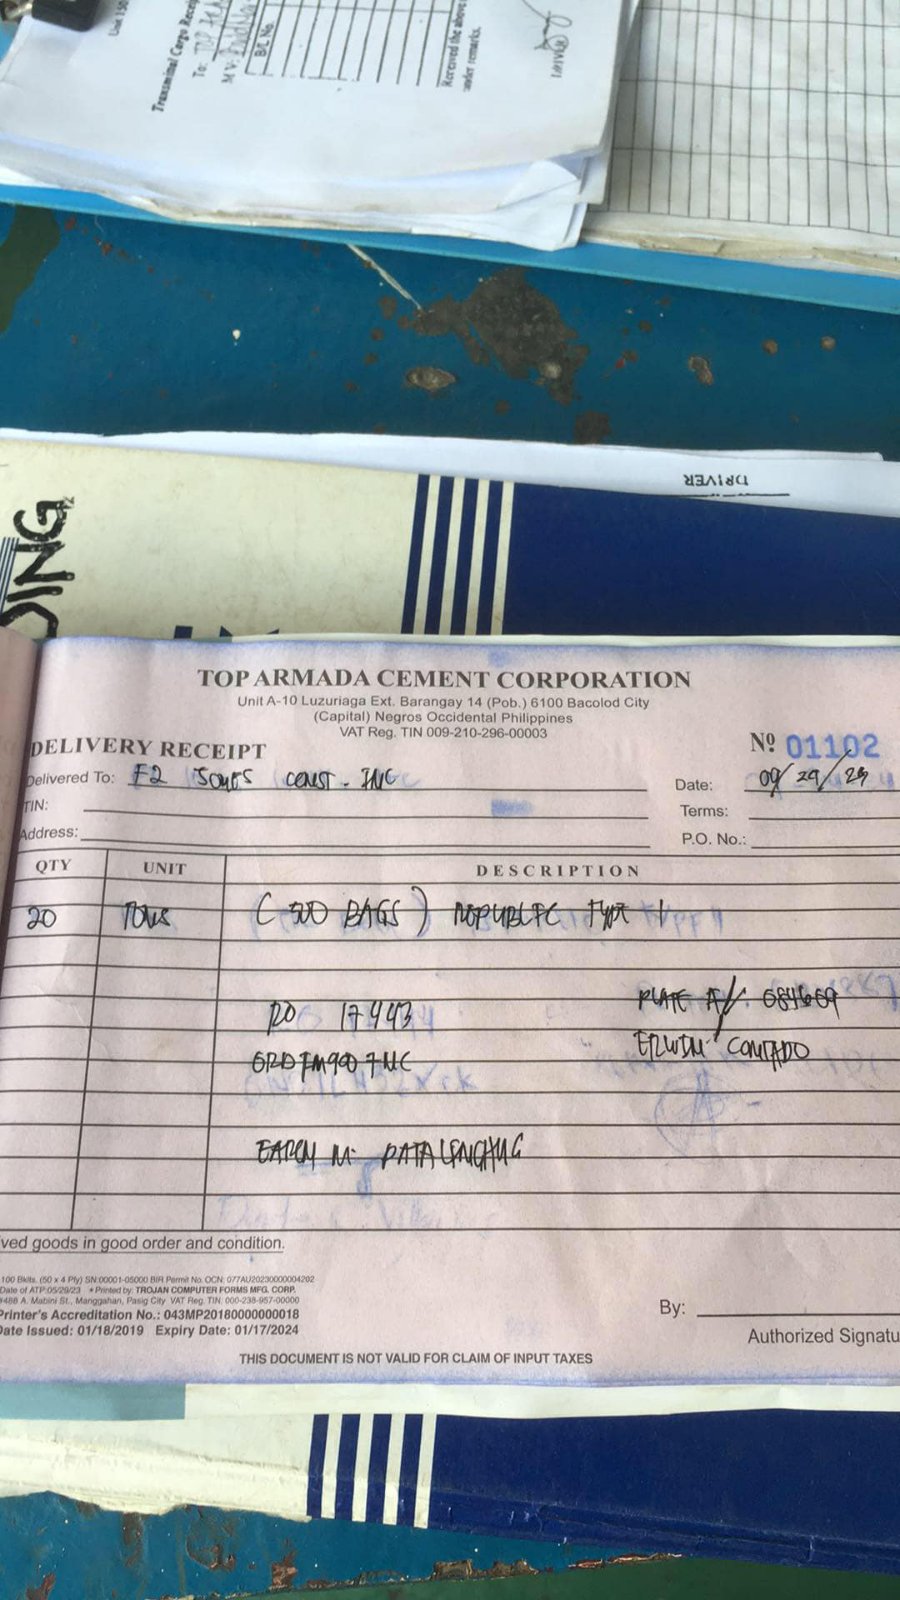 Unit 150
Transminal Cargo Recei
To:
M V.
B/L No.
Received the above
under remarks.
DRIVER
DING
TOP ARMADA CEMENT CORPORATION
Unit A-10 Luzuriaga Ext. Barangay 14 (Pob.) 6100 Bacolod City
(Capital) Negros Occidental Philippines
VAT Reg. TIN 009-210-296-00003
DELIVERY RECEIPT Nº 01102
Delivered To: F2 CONST. INC Date: 09/29/23
TIN: Terms:
Address: P.O. No.:
QTY UNIT DESCRIPTION
20 TONS (500 BAGS) REPUBLIC TYPE 1
RO 17443 PLATE #/ 084669
ERWIN CONTADO
EARLM M.
ved goods in good order and condition.
100 Bklts. (50 x 4 Ply) SN:00001-05000 BIR Permit No. OCN: 077AU20230000004202
Date of ATP:05/29/23 * Printed by: TROJAN COMPUTER FORMS MFG. CORP.
#48B A. Mabini St., Manggahan, Pasig City VAT Reg. TIN: 000-238-957-00000
Printer's Accreditation No.: 043MP20180000000018
Date Issued: 01/18/2019 Expiry Date: 01/17/2024
By:
Authorized Signatu
THIS DOCUMENT IS NOT VALID FOR CLAIM OF INPUT TAXES